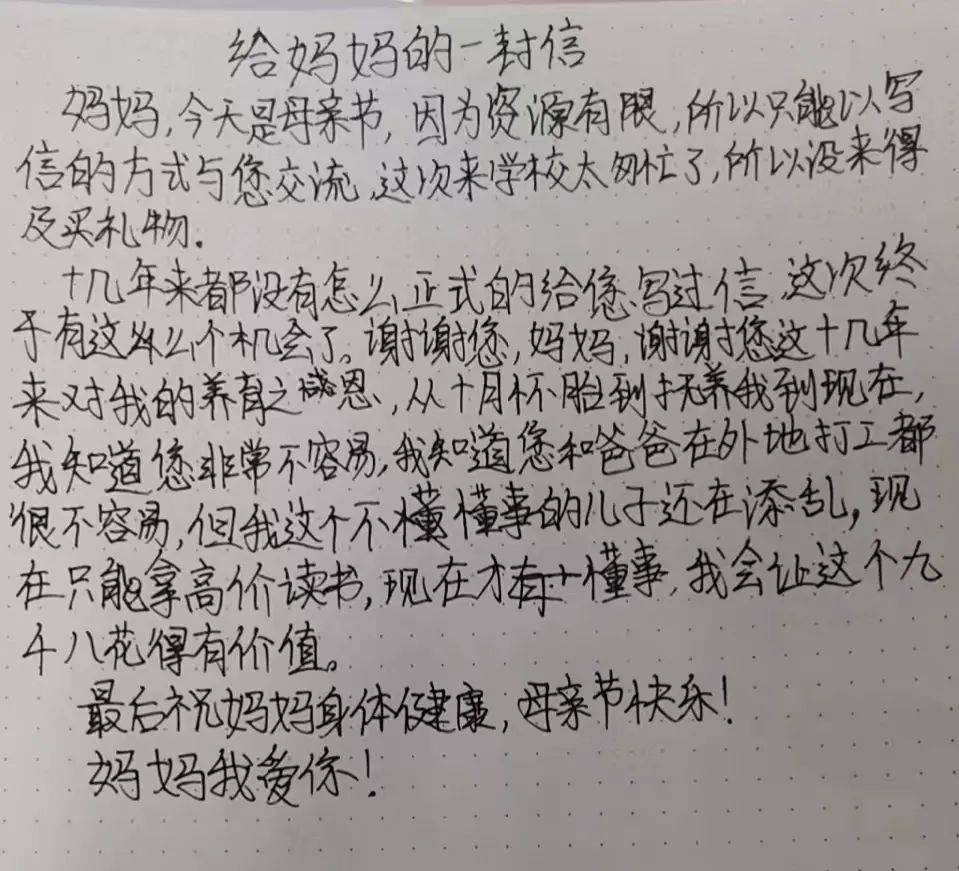 给妈妈的一封信
妈妈,今天是母亲节,因为资源有限,所以只能以写
信的方式与您交流,这次来学校太匆忙了,所以没来得
及买礼物。
十几年来都没有怎么正式的给您写过信,这次终
于有这么个机会了。谢谢您,妈妈,谢谢您这十几年
来对我的养育之感恩,从十月怀胎到抚养我到现在,
我知道您非常不容易,我知道您和爸爸在外地打工都
很不容易,但我这个不懂懂事的儿子还在添乱,现
在只能拿高价读书,现在才懂事,我会让这个九
千八花得有价值。
最后祝妈妈身体健康,母亲节快乐!
妈妈我爱你!